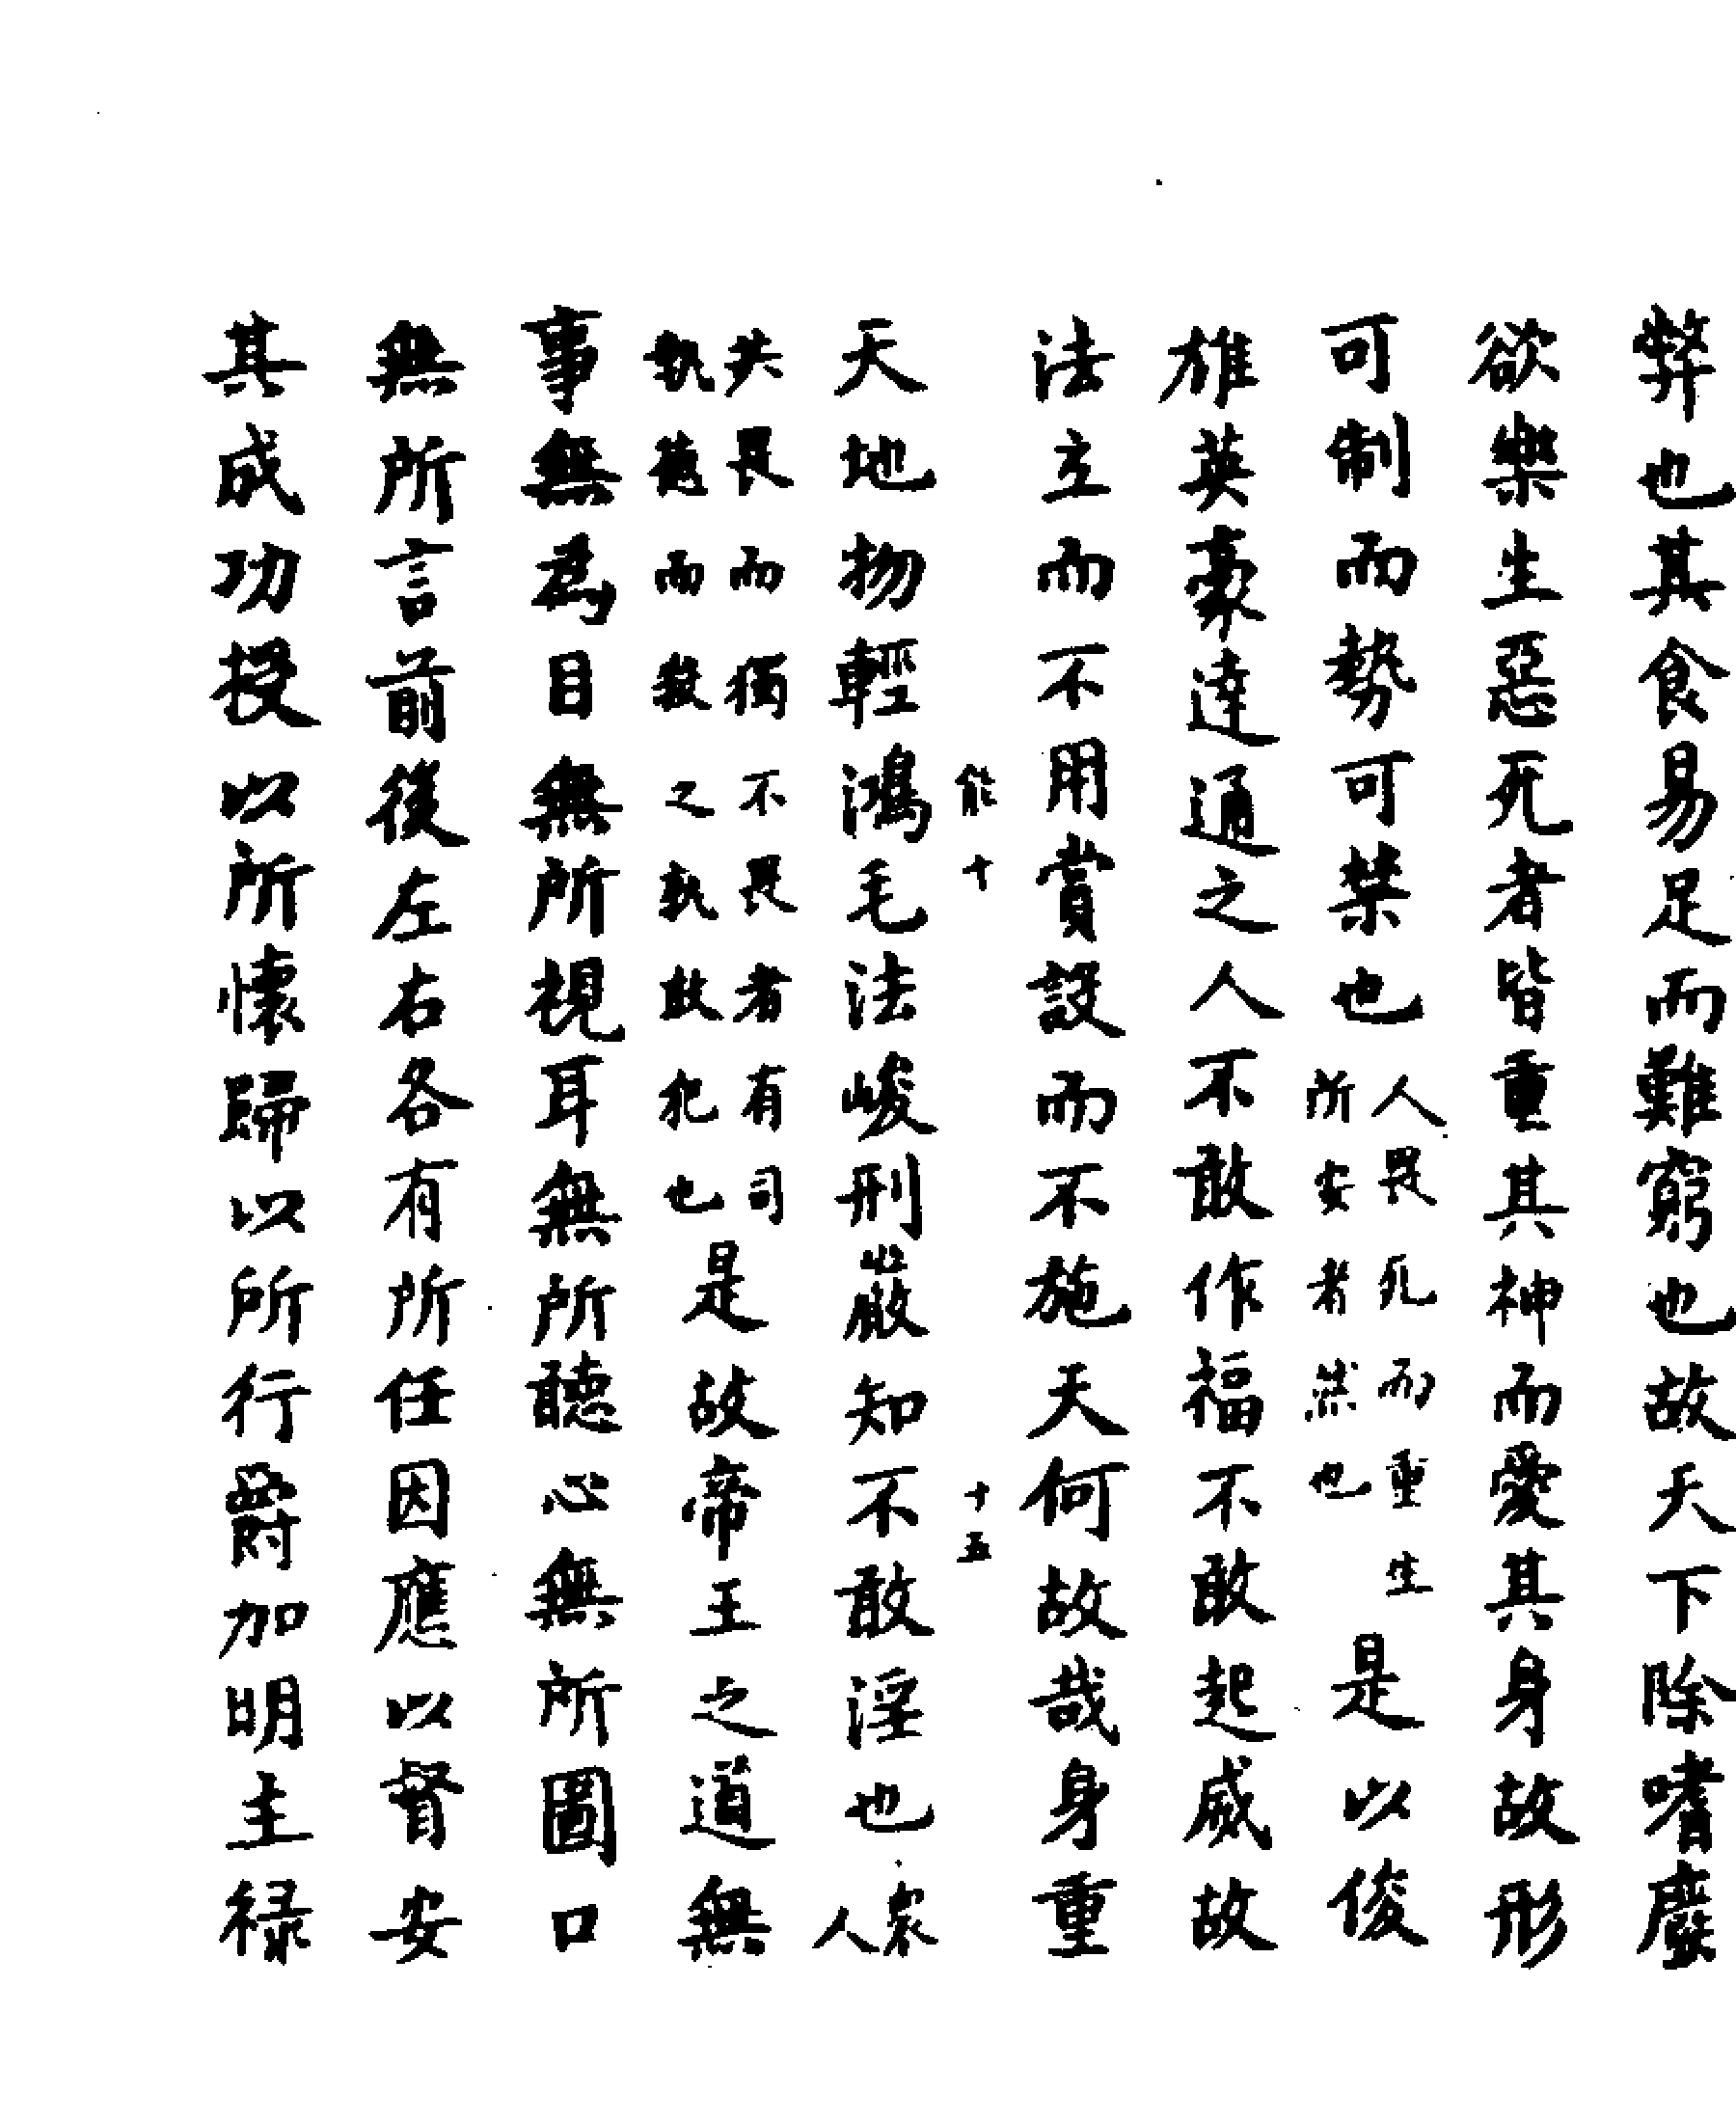 弊也其食易足而難窮也故天下除嗜廢
欲樂生惡死者皆重其神而愛其身故形
可制而勢可禁也人畏死而重生所安者然也是以俊
雄英豪達通之人不敢作福不敢起威故
法立而不用賞設而不施天何故哉身重
能十十五
天地物輕鴻毛法峻刑嚴知不敢淫也衆人
共畏而獨不畏者有司執德而殺之執敢犯也是故帝王之道無
事無為目無所視耳無所聽心無所圖口
無所言前後左右各有所任因應以督安
其成功授以所懷歸以所行爵加明主禄